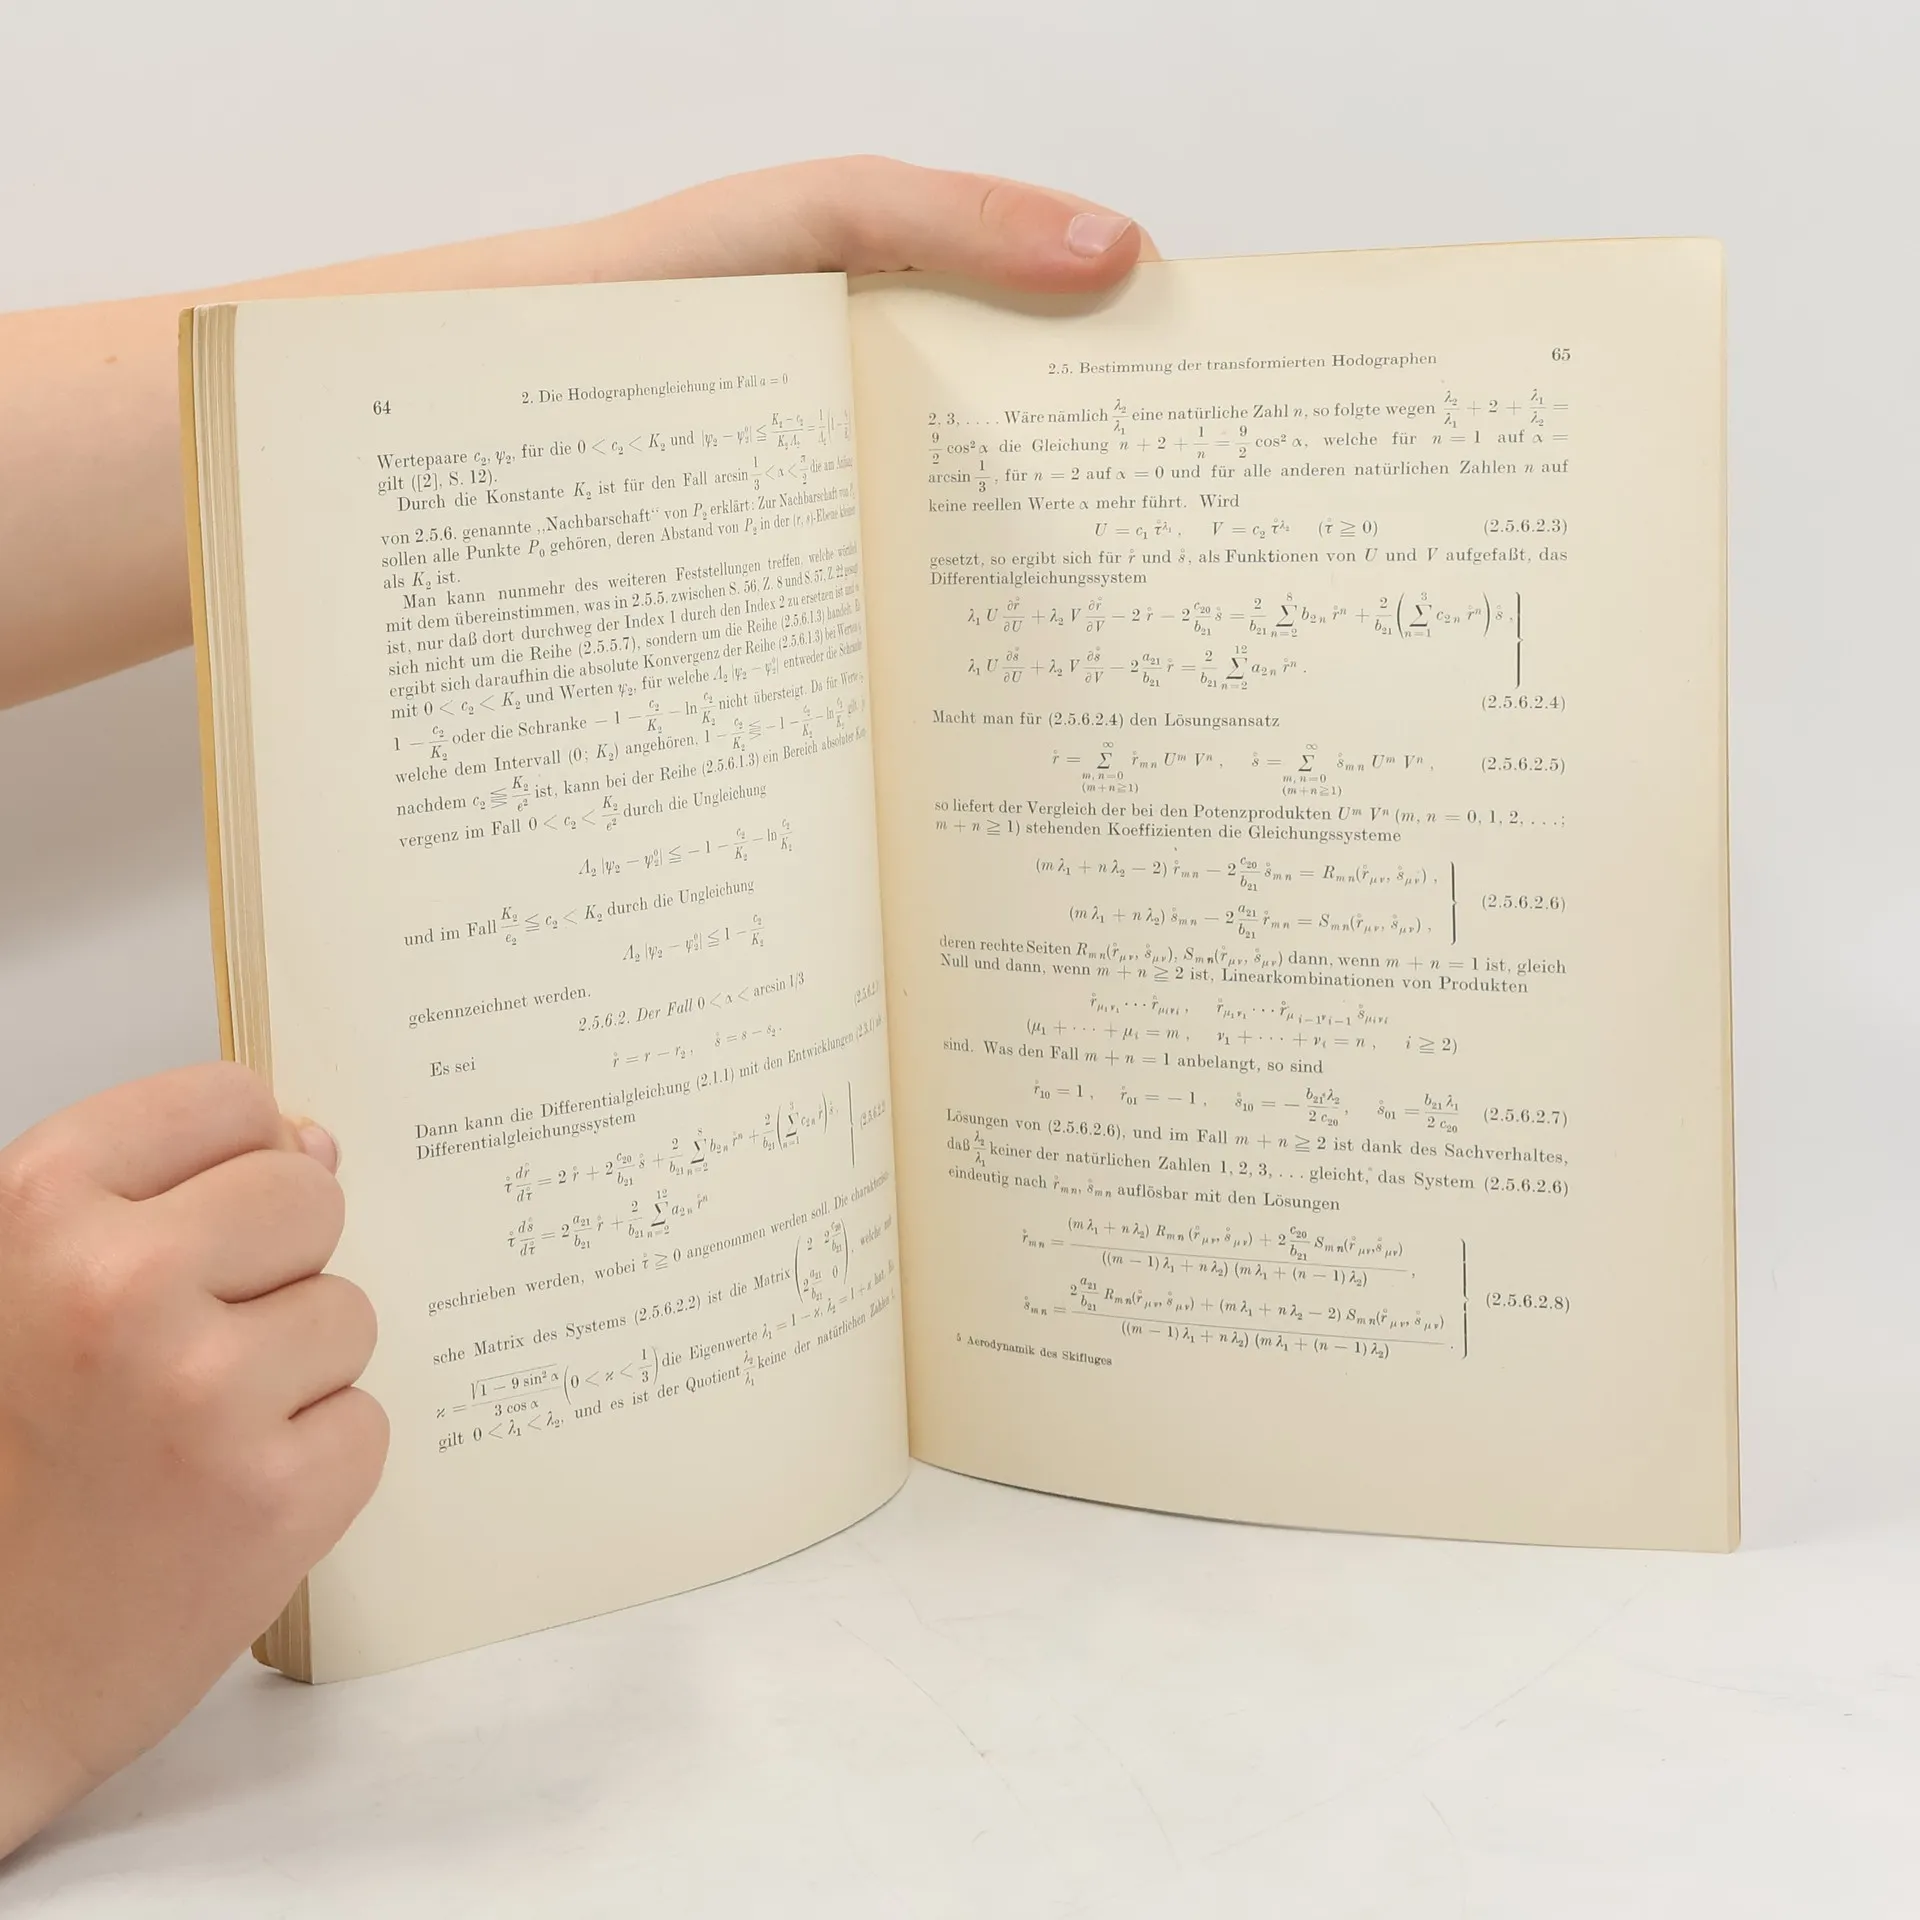 64
2. Die Hodographengleichung im Fall a = 0
Wertepaare c₂, ψ₂, für die 0 < c₂ < K₂ und |ψ₂ − ψ₂⁰| ≦ (K₂ − c₂)/(K₂ Λ₂) = 1/Λ₂ (1 −
gilt ([2], S. 12).
Durch die Konstante K₂ ist für den Fall arcsin 1/3 < α < π/2 die am Anfang
von 2.5.6. genannte „Nachbarschaft“ von P₂ erklärt: Zur Nachbarschaft von P₂
sollen alle Punkte P₀ gehören, deren Abstand von P₂ in der (r, s)-Ebene kleiner
als K₂ ist.
Man kann nunmehr des weiteren Feststellungen treffen, welche wörtlich
mit dem übereinstimmen, was in 2.5.5. zwischen S. 56, Z. 8 und S. 57, Z. 22 gesagt
ist, nur daß dort durchweg der Index 1 durch den Index 2 zu ersetzen ist und
sich nicht um die Reihe (2.5.5.7), sondern um die Reihe (2.5.6.1.3) handelt. Es
ergibt sich daraufhin die absolute Konvergenz der Reihe (2.5.6.1.3) bei Werten
mit 0 < c₂ < K₂ und Werten ψ₂, für welche Λ₂ |ψ₂ − ψ₂⁰| entweder die Schranke
1 − c₂/K₂ oder die Schranke − 1 − c₂/K₂ − ln c₂/K₂ nicht übersteigt. Da für Werte
welche dem Intervall (0; K₂) angehören, 1 − c₂/K₂ ⋚ − 1 − c₂/K₂ − ln c₂/K₂ gilt, je
nachdem c₂ ⋚ K₂/e² ist, kann bei der Reihe (2.5.6.1.3) ein Bereich absoluter Kon-
vergenz im Fall 0 < c₂ < K₂/e² durch die Ungleichung
Λ₂ |ψ₂ − ψ₂⁰| ≦ − 1 − c₂/K₂ − ln c₂/K₂
und im Fall K₂/e₂ ≦ c₂ < K₂ durch die Ungleichung
Λ₂ |ψ₂ − ψ₂⁰| ≦ 1 − c₂/K₂
gekennzeichnet werden.
2.5.6.2. Der Fall 0 < α < arcsin 1/3
Es sei r̊ = r − r₂, s̊ = s − s₂. (2.5.6.2.1)
Dann kann die Differentialgleichung (2.1.1) mit den Entwicklungen (2.3.1) als
Differentialgleichungssystem
τ̊ dr̊/dτ̊ = 2 r̊ + 2 c₂₀/b₂₁ s̊ + 2/b₂₁ ∑ₙ₌₂⁸ b₂ₙ r̊ⁿ + 2/b₂₁ (∑ₙ₌₁³ c₂ₙ r̊) s̊,
τ̊ ds̊/dτ̊ = 2 a₂₁/b₂₁ r̊ + 2/b₂₁ ∑ₙ₌₂¹² a₂ₙ r̊ⁿ (2.5.6.2.2
geschrieben werden, wobei τ̊ ≧ 0 angenommen werden soll. Die charakteristi-
sche Matrix des Systems (2.5.6.2.2) ist die Matrix (2 2 c₂₀/b₂₁; 2 a₂₁/b₂₁ 0), welche mit
ϰ = √(1 − 9 sin² α)/(3 cos α) (0 < ϰ < 1/3) die Eigenwerte λ₁ = 1 − ϰ, λ₂ = 1 + ϰ hat. Es
gilt 0 < λ₁ < λ₂, und es ist der Quotient λ₂/λ₁ keine der natürlichen Zahlen 1,
2.5. Bestimmung der transformierten Hodographen
65
2, 3, . . . . Wäre nämlich λ₂/λ₁ eine natürliche Zahl n, so folgte wegen λ₂/λ₁ + 2 + λ₁/λ₂ =
9/2 cos² α die Gleichung n + 2 + 1/n = 9/2 cos² α, welche für n = 1 auf α =
arcsin 1/3, für n = 2 auf α = 0 und für alle anderen natürlichen Zahlen n auf
keine reellen Werte α mehr führt. Wird
U = c₁ τ̊^λ₁, V = c₂ τ̊^λ₂ (τ̊ ≧ 0) (2.5.6.2.3)
gesetzt, so ergibt sich für r̊ und s̊, als Funktionen von U und V aufgefaßt, das
Differentialgleichungssystem
λ₁ U ∂r̊/∂U + λ₂ V ∂r̊/∂V − 2 r̊ − 2 c₂₀/b₂₁ s̊ = 2/b₂₁ ∑ₙ₌₂⁸ b₂ₙ r̊ⁿ + 2/b₂₁ (∑ₙ₌₁³ c₂ₙ r̊ⁿ) s̊,
λ₁ U ∂s̊/∂U + λ₂ V ∂s̊/∂V − 2 a₂₁/b₂₁ r̊ = 2/b₂₁ ∑ₙ₌₂¹² a₂ₙ r̊ⁿ.
(2.5.6.2.4)
Macht man für (2.5.6.2.4) den Lösungsansatz
r̊ = ∑ r̊ₘₙ Uᵐ Vⁿ, s̊ = ∑ s̊ₘₙ Uᵐ Vⁿ, (2.5.6.2.5)
∞ ∞
m, n=0 m, n=0
(m+n≧1) (m+n≧1)
so liefert der Vergleich der bei den Potenzprodukten Uᵐ Vⁿ (m, n = 0, 1, 2, . . .;
m + n ≧ 1) stehenden Koeffizienten die Gleichungssysteme
(m λ₁ + n λ₂ − 2) r̊ₘₙ − 2 c₂₀/b₂₁ s̊ₘₙ = Rₘₙ(r̊μν, s̊μν),
(m λ₁ + n λ₂) s̊ₘₙ − 2 a₂₁/b₂₁ r̊ₘₙ = Sₘₙ(r̊μν, s̊μν), (2.5.6.2.6)
deren rechte Seiten Rₘₙ(r̊μν, s̊μν), Sₘₙ(r̊μν, s̊μν) dann, wenn m + n = 1 ist, gleich
Null und dann, wenn m + n ≧ 2 ist, Linearkombinationen von Produkten
r̊μ₁ν₁ · · · r̊μᵢνᵢ, r̊μ₁ν₁ · · · r̊μᵢ₋₁νᵢ₋₁ s̊μᵢνᵢ
(μ₁ + · · · + μᵢ = m, ν₁ + · · · + νᵢ = n, i ≧ 2)
sind. Was den Fall m + n = 1 anbelangt, so sind
r̊₁₀ = 1, r̊₀₁ = − 1, s̊₁₀ = − b₂₁ λ₂/(2 c₂₀), s̊₀₁ = b₂₁ λ₁/(2 c₂₀) (2.5.6.2.7)
Lösungen von (2.5.6.2.6), und im Fall m + n ≧ 2 ist dank des Sachverhaltes,
daß λ₂/λ₁ keiner der natürlichen Zahlen 1, 2, 3, . . . gleicht, das System (2.5.6.2.6)
eindeutig nach r̊ₘₙ, s̊ₘₙ auflösbar mit den Lösungen
r̊ₘₙ = ((m λ₁ + n λ₂) Rₘₙ(r̊μν, s̊μν) + 2 c₂₀/b₂₁ Sₘₙ(r̊μν, s̊μν))/(((m − 1) λ₁ + n λ₂) (m λ₁ + (n − 1) λ₂)),
s̊ₘₙ = (2 a₂₁/b₂₁ Rₘₙ(r̊μν, s̊μν) + (m λ₁ + n λ₂ − 2) Sₘₙ(r̊μν, s̊μν))/(((m − 1) λ₁ + n λ₂) (m λ₁ + (n − 1) λ₂)). (2.5.6.2.8)
5 Aerodynamik des Skifluges